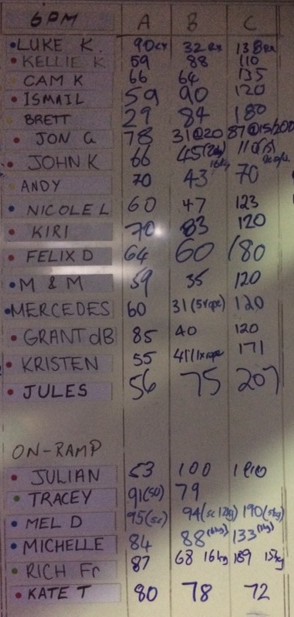 6PM A B C
LUKE K. 90 32 138
KELLIE K 59 88 110
CAM K 66 64 135
ISMAIL 59 90 120
BRETT 29 84 180
JON G 78 31@20 87@15/200
JOHN K 66 45
ANDY 70 43 70
NICOLE L 60 47 123
KIRI 70 83 120
FELIX D 64 60 180
M & M 59 35 120
MERCEDES 60 31 120
GRANT dB 85 40 120
KRISTEN 55 171
JULES 56 75 207
ON-RAMP
JULIAN 53 100
TRACEY 91(50) 79
MEL D 95 94 190
MICHELLE 84 88 133
RICH Fr 87 68 16kg 189 15kg
KATE T 80 78 72